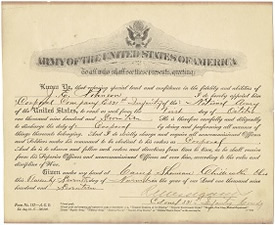 ARMY OF THE UNITED STATES OF AMERICA
To all who shall see these presents, greeting:
Know Ye, that reposing special trust and confidence in the fidelity and abilities of
Johnson I do hereby appoint him
Corporal Company Infantry of the National Army
of the United States, to rank as such from the First day of October
one thousand nine hundred and He is therefore carefully and diligently
to discharge the duty of Corporal by doing and performing all manner of
things thereunto belonging. And I do strictly charge and require all noncommissioned Officers
and Soldiers under his command to be obedient to his orders as Corporal
And he is to observe and follow such orders and directions from time to time, as he shall receive
from his Superior Officers and noncommissioned Officers set over him, according to the rules and
discipline of War.
Given under my hand at Camp Sherman Chillicothe Ohio
this day of November in the year of our Lord one thousand nine
hundred and
Form No.
Colonel Infantry